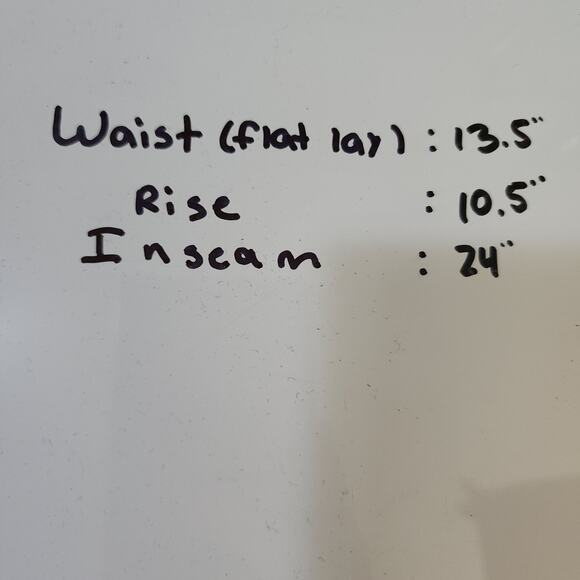 Waist (flat lay) : 13.5"
Rise : 10.5"
Inseam : 24"